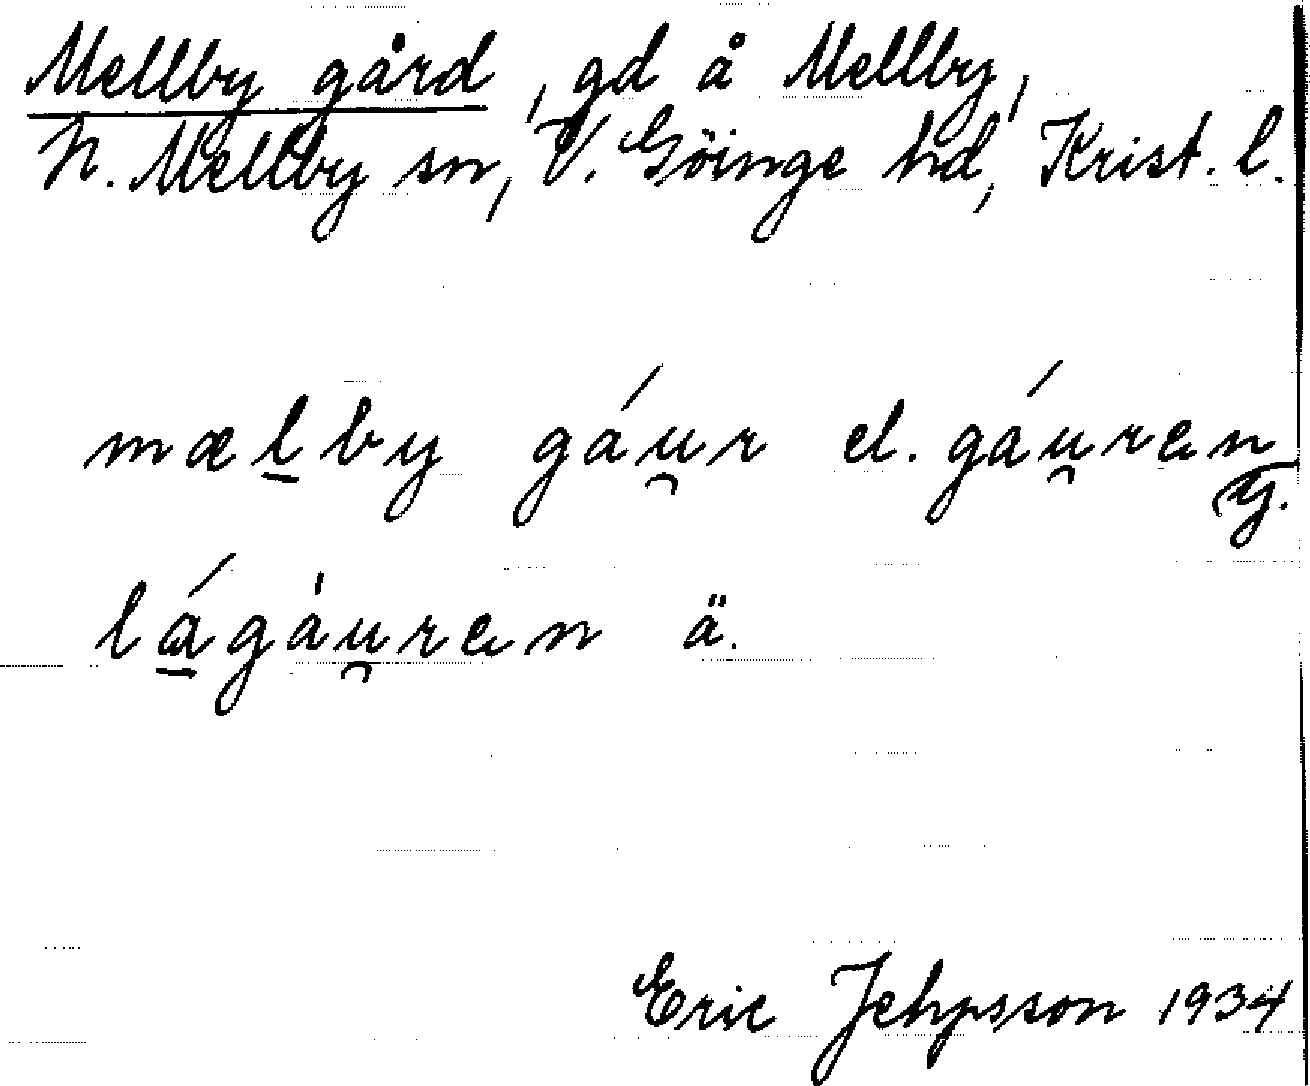 Mellby gård, gd å Mellby,
N. Mellby sn, V. Göinge hd, Krist. l.
mælby gáu̯r el. gáu̯ren
y.
lágàu̯ren ä.
Eric Jehpsson 1934